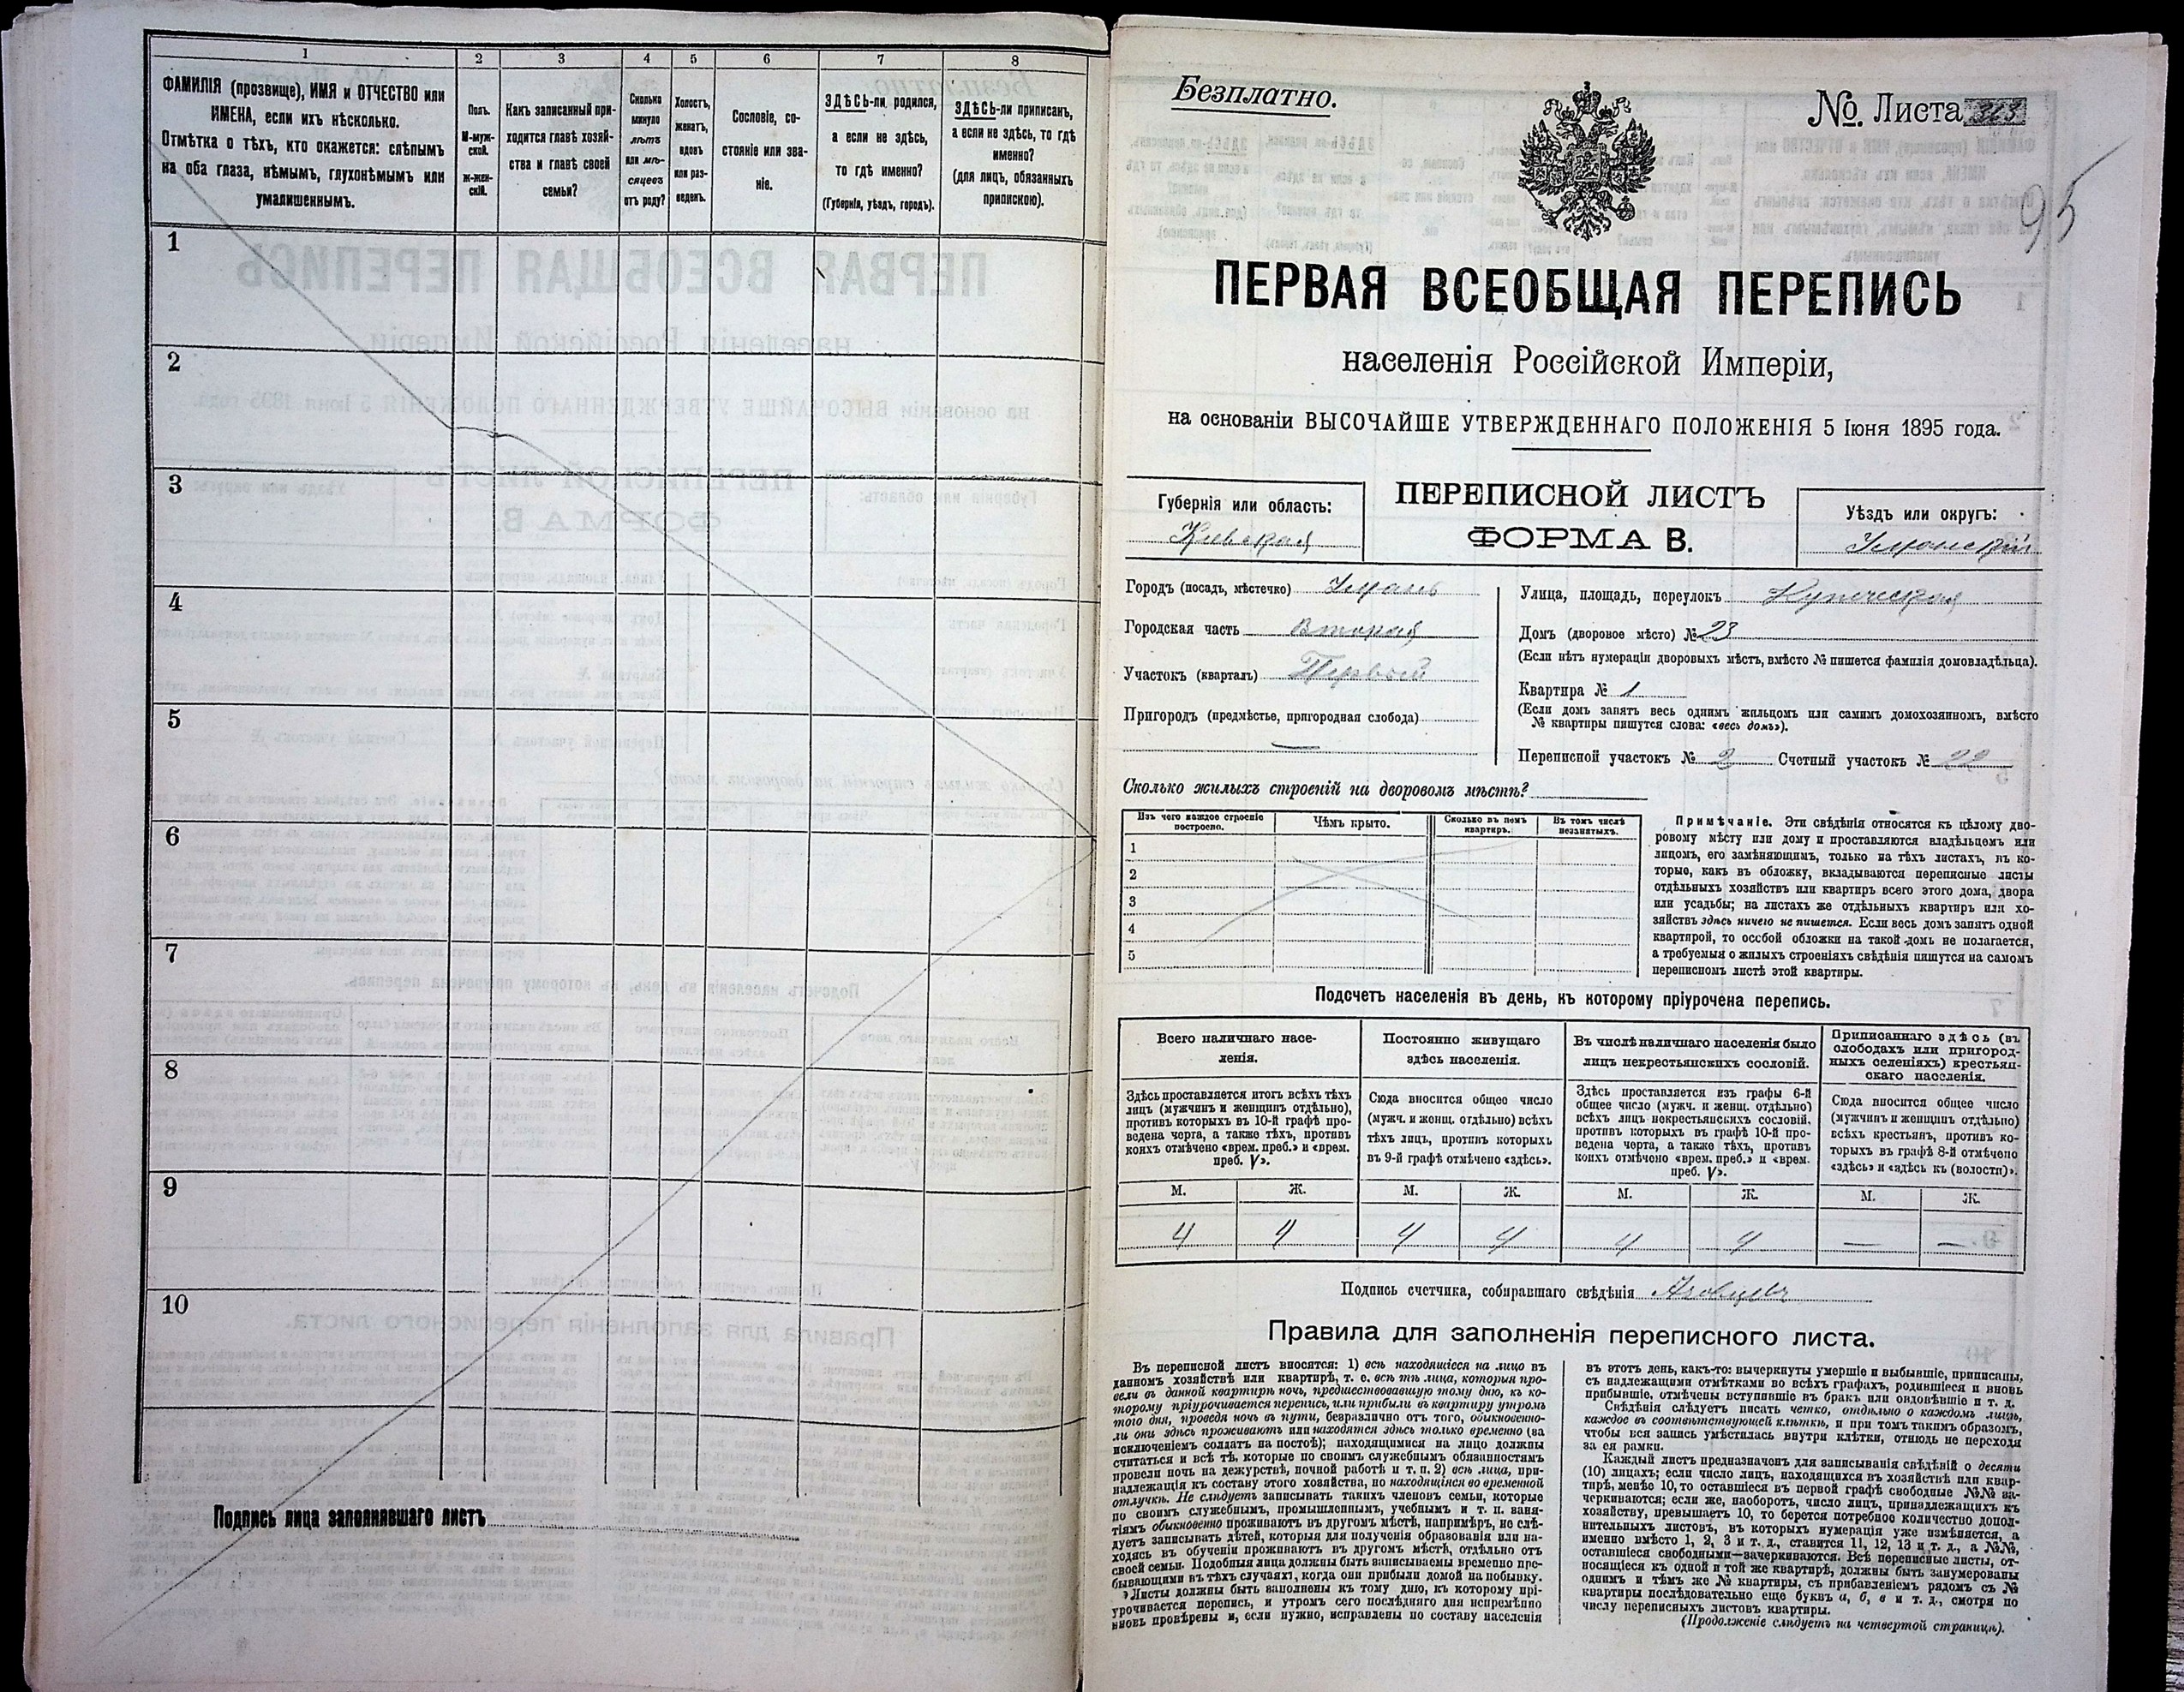 1 2 3 4 5 6 7 8
ФАМИЛІЯ (прозвище), ИМЯ и ОТЧЕСТВО или
ИМЕНА, если ихъ нѣсколько.
Отмѣтка о тѣхъ, кто окажется: слѣпымъ
на оба глаза, нѣмымъ, глухонѣмымъ или
умалишеннымъ.
Полъ.
М-муж-
ской.
ж-жен-
скій.
Какъ записанный при-
ходится главѣ хозяй-
ства и главѣ своей
семьи?
Сколько
минуло
лѣтъ
или мѣ-
сяцевъ
отъ роду?
Холостъ,
женатъ,
вдовъ
или раз-
веденъ.
Сословіе, со-
стояніе или зва-
ніе.
ЗДѢСЬ-ли родился,
а если не здѣсь,
то гдѣ именно?
(Губернія, уѣздъ, городъ).
ЗДѢСЬ-ли приписанъ,
а если не здѣсь, то гдѣ
именно?
(для лицъ, обязанныхъ
припискою).
1
2
3
4
5
6
7
8
9
10
Подпись лица заполнявшаго листъ
Безплатно.
№ Листа 363
95
ПЕРВАЯ ВСЕОБЩАЯ ПЕРЕПИСЬ
населенія Россійской Имперіи,
на основаніи ВЫСОЧАЙШЕ УТВЕРЖДЕННАГО ПОЛОЖЕНІЯ 5 Іюня 1895 года.
Губернія или область:
Кіевская
ПЕРЕПИСНОЙ ЛИСТЪ
ФОРМА В.
Уѣздъ или округъ:
Уманскій
Городъ (посадъ, мѣстечко) Умань
Городская часть Вторая
Участокъ (кварталъ) Первый
Пригородъ (предмѣстье, пригородная слобода)
Улица, площадь, переулокъ Купеческая
Домъ (дворовое мѣсто) № 23
(Если нѣтъ нумераціи дворовыхъ мѣстъ, вмѣсто № пишется фамилія домовладѣльца).
Квартира № 1
(Если домъ занятъ весь однимъ жильцомъ или самимъ домохозяиномъ, вмѣсто
№ квартиры пишутся слова: «весь домъ»).
Переписной участокъ № 2 Счетный участокъ № 22
Сколько жилыхъ строеній на дворовомъ мѣстѣ?
Изъ чего каждое строеніе
построено.
Чѣмъ крыто.
Сколько въ немъ
квартиръ.
Въ томъ числѣ
незанятыхъ.
1
2
3
4
5
Примѣчаніе. Эти свѣдѣнія относятся къ цѣлому дво-
ровому мѣсту или дому и проставляются владѣльцемъ или
лицомъ, его замѣняющимъ, только на тѣхъ листахъ, въ ко-
торые, какъ въ обложку, вкладываются переписные листы
отдѣльныхъ хозяйствъ или квартиръ всего этого дома, двора
или усадьбы; на листахъ же отдѣльныхъ квартиръ или хо-
зяйствъ здѣсь ничего не пишется. Если весь домъ занятъ одной
квартирой, то особой обложки на такой домъ не полагается,
а требуемыя о жилыхъ строеніяхъ свѣдѣнія пишутся на самомъ
переписномъ листѣ этой квартиры.
Подсчетъ населенія въ день, къ которому пріурочена перепись.
Всего наличнаго насе-
ленія.
Здѣсь проставляется итогъ всѣхъ тѣхъ
лицъ (мужчинъ и женщинъ отдѣльно),
противъ которыхъ въ 10-й графѣ про-
ведена черта, а также тѣхъ, противъ
коихъ отмѣчено «врем. преб.» и «врем.
преб. V».
Постоянно живущаго
здѣсь населенія.
Сюда вносится общее число
(мужч. и женщ. отдѣльно) всѣхъ
тѣхъ лицъ, противъ которыхъ
въ 9-й графѣ отмѣчено «здѣсь».
Въ числѣ наличнаго населенія было
лицъ некрестьянскихъ сословій.
Здѣсь проставляется изъ графы 6-й
общее число (мужч. и женщ. отдѣльно)
всѣхъ лицъ некрестьянскихъ сословій,
противъ которыхъ въ графѣ 10-й про-
ведена черта, а также тѣхъ, противъ
коихъ отмѣчено «врем. преб.» и «врем.
преб. V».
Приписаннаго здѣсь (въ
слободахъ или пригород-
ныхъ селеніяхъ) крестьян-
скаго населенія.
Сюда вносится общее число
(мужчинъ и женщинъ отдѣльно)
всѣхъ крестьянъ, противъ ко-
торыхъ въ графѣ 8-й отмѣчено
«здѣсь» и «здѣсь къ (волости)».
М. Ж. М. Ж. М. Ж. М. Ж.
4 4 4 4 4 4 — —
Подпись счетчика, собиравшаго свѣдѣнія
Правила для заполненія переписного листа.
Въ переписной листъ вносятся: 1) всѣ находящіеся на лицо въ
данномъ хозяйствѣ или квартирѣ, т. е. всѣ тѣ лица, которыя про-
вели въ данной квартирѣ ночь, предшествовавшую тому дню, къ ко-
торому пріурочивается перепись, или прибыли въ квартиру утромъ
того дня, проведя ночь въ пути, безразлично отъ того, обыкновенно-
ли они здѣсь проживаютъ или находятся здѣсь только временно (за
исключеніемъ солдатъ на постоѣ); находящимися на лицо должны
считаться и всѣ тѣ, которые по своимъ служебнымъ обязанностямъ
провели ночь на дежурствѣ, ночной работѣ и т. п. 2) всѣ лица, при-
надлежащія къ составу этого хозяйства, но находящіяся во временной
отлучкѣ. Не слѣдуетъ записывать такихъ членовъ семьи, которые
по своимъ служебнымъ, промышленнымъ, учебнымъ и т. п. заня-
тіямъ обыкновенно проживаютъ въ другомъ мѣстѣ, напримѣръ, не слѣ-
дуетъ записывать дѣтей, которыя для полученія образованія или на-
ходясь въ обученіи проживаютъ въ другомъ мѣстѣ, отдѣльно отъ
своей семьи. Подобныя лица должны быть записываемы временно пре-
бывающими въ тѣхъ случаяхъ, когда они прибыли домой на побывку.
Листы должны быть заполнены къ тому дню, къ которому прі-
урочивается перепись, и утромъ сего послѣдняго дня непремѣнно
вновь провѣрены и, если нужно, исправлены по составу населенія
въ этотъ день, какъ-то: вычеркнуты умершіе и выбывшіе, приписаны,
съ надлежащими отмѣтками во всѣхъ графахъ, родившіеся и вновь
прибывшіе, отмѣчены вступившіе въ бракъ или овдовѣвшіе и т. д.
Свѣдѣнія слѣдуетъ писать четко, отдѣльно о каждомъ лицѣ,
каждое въ соотвѣтствующей клѣткѣ, и при томъ такимъ образомъ,
чтобы вся запись умѣстилась внутри клѣтки, отнюдь не переходя
за ея рамки.
Каждый листъ предназначенъ для записыванія свѣдѣній о десяти
(10) лицахъ; если число лицъ, находящихся въ хозяйствѣ или квар-
тирѣ, менѣе 10, то оставшіеся въ первой графѣ свободные №№ за-
черкиваются; если же, наоборотъ, число лицъ, принадлежащихъ къ
хозяйству, превышаетъ 10, то берется потребное количество допол-
нительныхъ листовъ, въ которыхъ нумерація уже измѣняется, а
именно вмѣсто 1, 2, 3 и т. д., ставится 11, 12, 13 и т. д., а №№,
оставшіеся свободными—зачеркиваются. Всѣ переписные листы, от-
носящіеся къ одной и той же квартирѣ, должны быть занумерованы
однимъ и тѣмъ же № квартиры, съ прибавленіемъ рядомъ съ №
квартиры послѣдовательно еще буквъ а, б, в и т. д., смотря по
числу переписныхъ листовъ квартиры.
(Продолженіе слѣдуетъ на четвертой страницѣ).